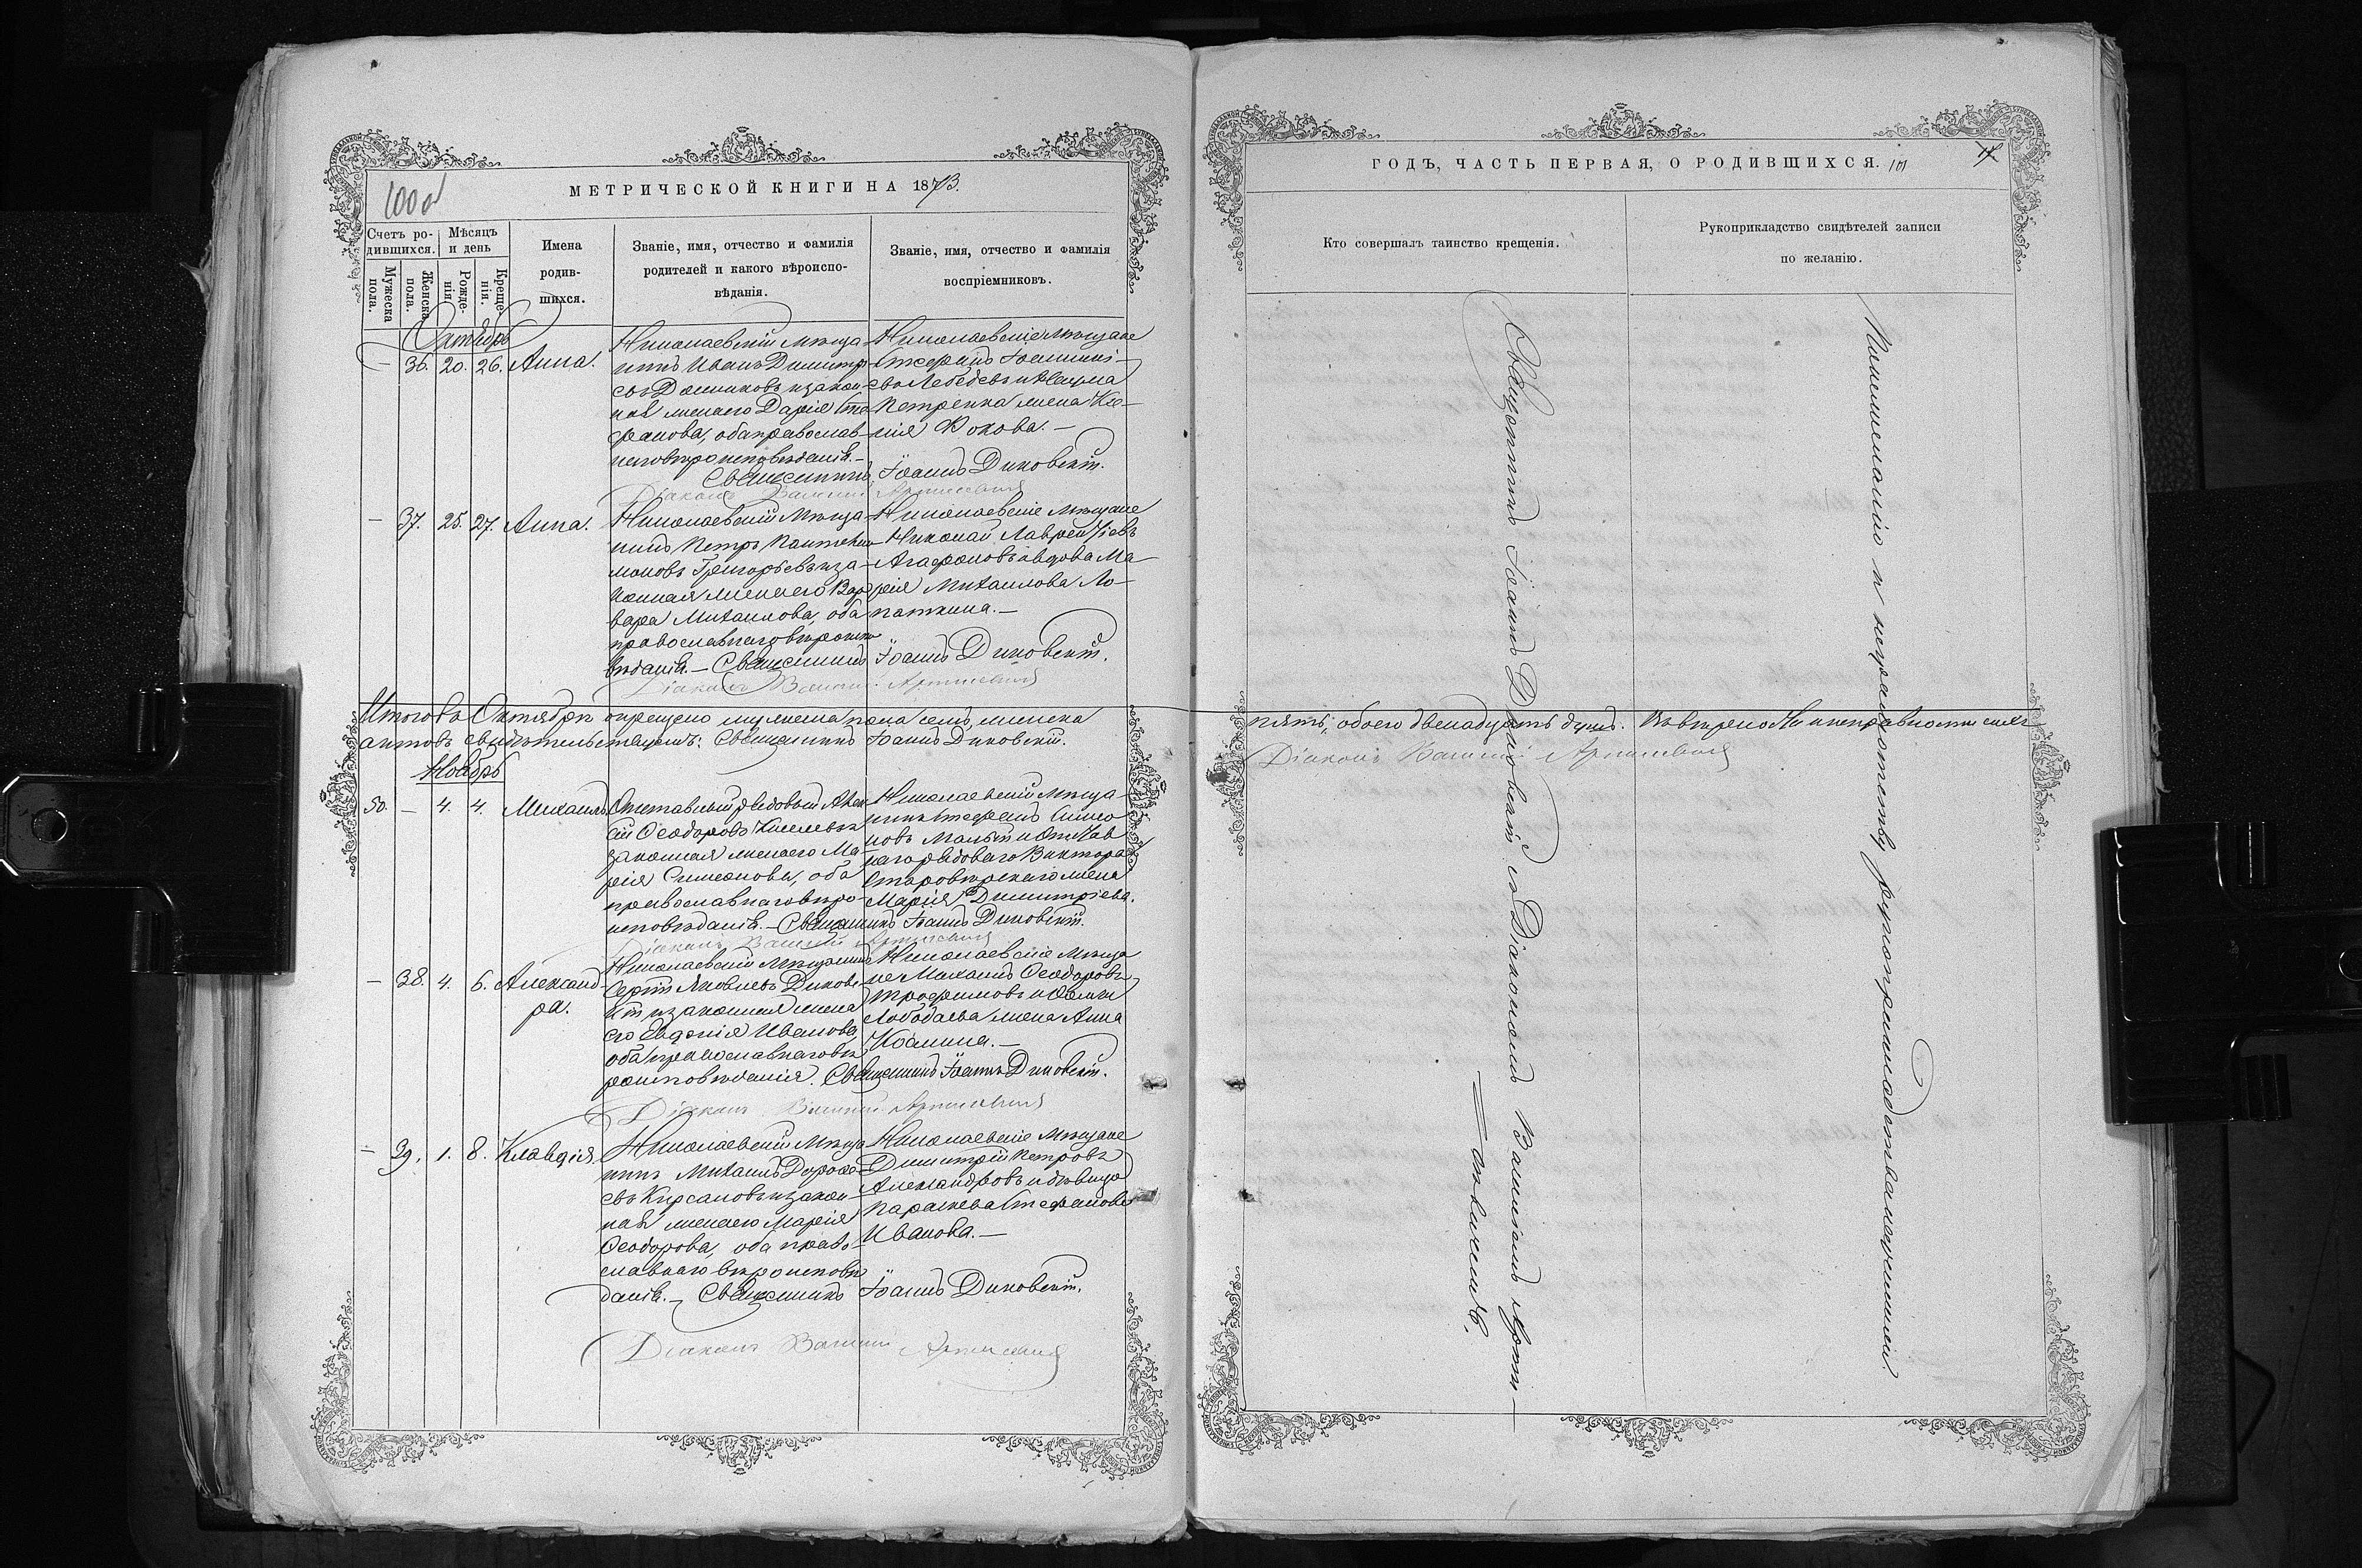 100 об
МЕТРИЧЕСКОЙ КНИГИ НА 1873.
Счетъ ро-
дившихся.
Мужеска
пола.
Женска
пола.
Мѣсяцъ
и день
Рожде-
нія.
Креще-
нія.
Имена
родив-
шихся.
Званіе, имя, отчество и фамилія
родителей и какого вѣроиспо-
вѣданія.
Званіе, имя, отчество и фамилія
воспріемниковъ.
Октябрь
— 36. 20. 26. Анна.
Николаевскій мѣща-
нинъ Иванъ Димитрі-
евъ и закон-
ная жена его Дарія Сте-
фанова, оба православ-
наго вѣроисповѣданія.—
Николаевскіе мѣщане
Стефанъ Іоанні-
евъ Лебедевъ и
Петренка жена
Фокова.—
Священникъ Іоаннъ Диковскій.
Діаконъ Василій
— 37. 25. 27. Анна.
Николаевскій мѣща-
нинъ Петръ Пантелеи-
моновъ Григорьевъ и за-
конная жена его Вар-
вара Михаилова, оба
православнаго вѣроиспо-
вѣданія.—
Николаевскіе мѣщане
Николай Лаврентіевъ
Агафоновъ и вдова Ма-
рія Михаилова Ло-
паткина.—
Священникъ Іоаннъ Диковскій.
Діаконъ Василій
Итого въ Октябрѣ крещено мужеска пола семь, женска
актовъ свидѣтельствуемъ: Священникъ Іоаннъ Диковскій.
Ноябрь
50. — 4. 4. Михаилъ
Отставный рядовый Алек-
сій Ѳеодоровъ Киселевъ и
законная жена его Ма-
рія Симеонова, оба
православнаго вѣро-
исповѣданія.—
Николаевскій мѣща-
нинъ Стефанъ Симео-
новъ и отстав-
наго рядоваго Виктора
жена
Марія Димитріева.
Священникъ Іоаннъ Диковскій.
Діаконъ Василій
— 38. 4. 6. Александ-
ра.
Николаевскій мѣщанинъ
Сергій Яковлевъ Диков-
скій и законная жена
его Евдокія Иванова,
оба православнаго вѣ-
роисповѣданія.
Николаевскіе мѣща-
не Михаилъ Ѳеодоровъ
Трофимовъ и
Лободаева жена Анна
Священникъ Іоаннъ Диковскій.
Діаконъ Василій
— 39. 1. 8. Клавдія.
Николаевскій мѣща-
нинъ Михаилъ Дороѳе-
евъ Кирсановъ и закон-
ная жена его Марія
Ѳеодорова, оба право-
славнаго вѣроисповѣ-
данія.—
Николаевскіе мѣщане
Димитрій Петровъ
Александровъ и дѣвица
Параскева Стефанова
Иванова.—
Священникъ Іоаннъ Диковскій.
Діаконъ Василій
ГОДЪ, ЧАСТЬ ПЕРВАЯ, О РОДИВШИХСЯ. 101
Кто совершалъ таинство крещенія.
Рукоприкладство свидѣтелей записи
по желанію.
Священникъ Іоаннъ Диковскій съ Діакономъ Василіемъ
По нежеланію и неграмотству рукоприкладства не учинили.
пять, обоего двенадцать душъ. Въ вѣрности и исправности сихъ
Діаконъ Василій